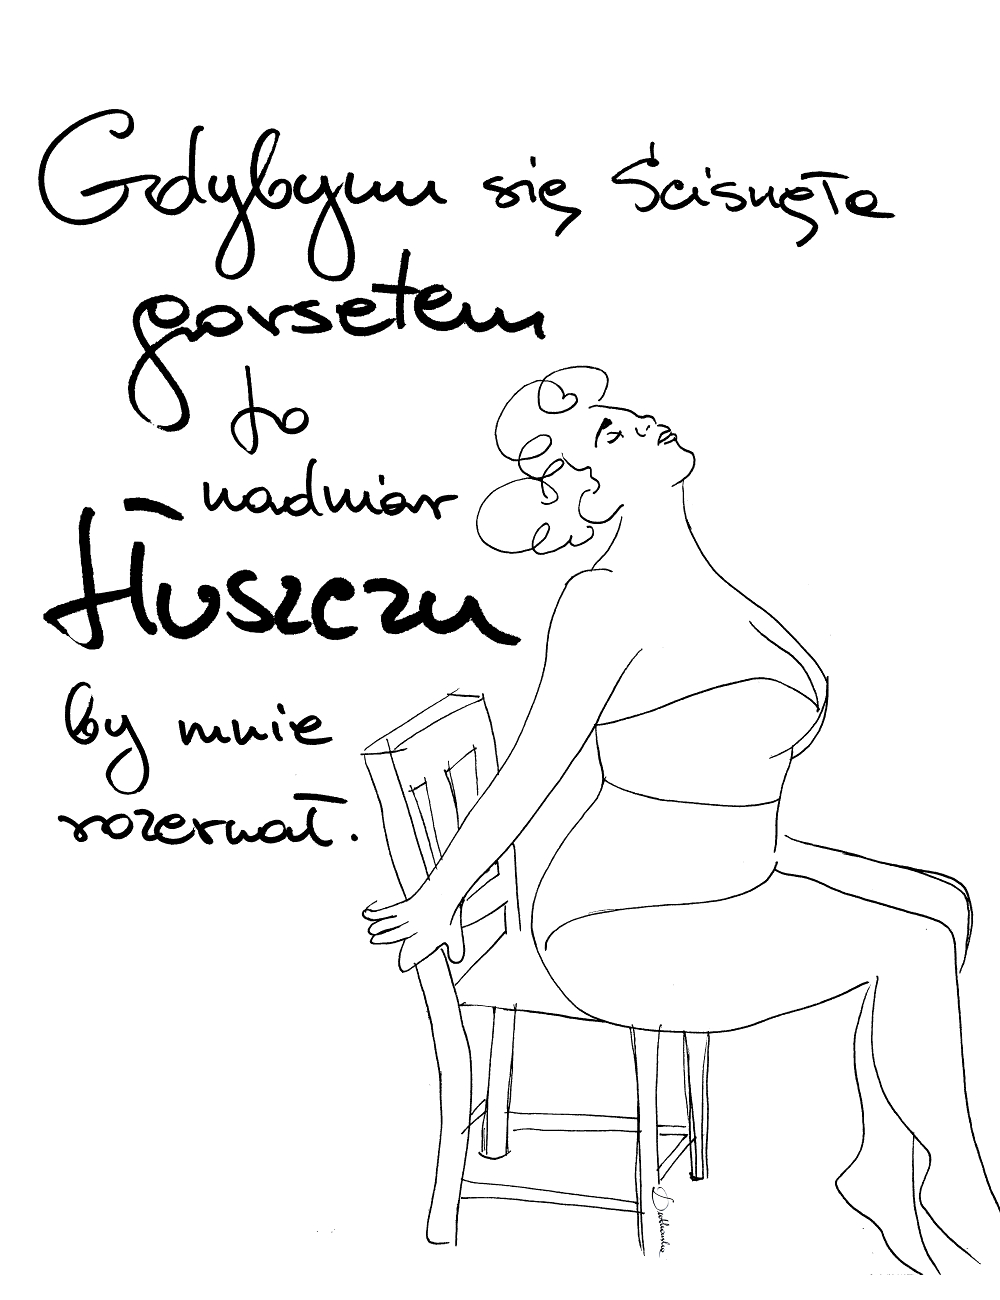 Gdybym się ścisnęła
gorsetem
to
nadmiar
tłuszczu
by mnie
rozerwał.